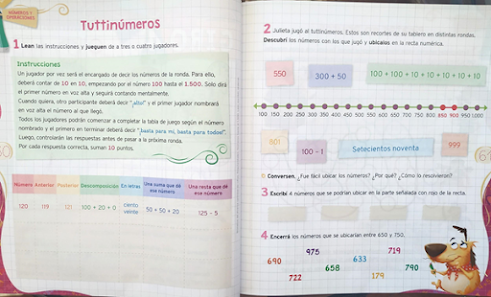 NÚMEROS Y
OPERACIONES
Tuttinúmeros
1 Lean las instrucciones y jueguen de a tres o cuatro jugadores.
Instrucciones
Un jugador por vez será el encargado de decir los números de la ronda. Para ello,
deberá contar de 10 en 10, empezando por el número 100 hasta el 1.500. Solo dirá
el primer número en voz alta y seguirá contando mentalmente.
Cuando quiera, otro participante deberá decir "¡alto!" y el primer jugador nombrará
en voz alta el número al que llegó.
Todos los jugadores podrán comenzar a completar la tabla de juego según el número
nombrado y el primero en terminar deberá decir "¡basta para mí, basta para todos!".
Luego, controlarán las respuestas antes de pasar a la próxima ronda.
Por cada respuesta correcta, suman 10 puntos.
Número Anterior Posterior Descomposición En letras Una suma que dé ese número Una resta que dé ese número
120 119 121 100 + 20 + 0 ciento veinte 50 + 50 + 20 125 - 5
2 Julieta jugó al tuttinúmeros. Estos son recortes de su tablero en distintas rondas.
Descubrí los números con los que jugó y ubicalos en la recta numérica.
550
300 + 50
100 + 100 + 10 + 10 + 10 + 10 + 10
100 150 200 250 300 350 400 450 500 550 600 650 700 750 800 850 900 950 1.000
601
100 - 1
Setecientos noventa
999
Conversen. ¿Fue fácil ubicar los números? ¿Por qué? ¿Cómo lo resolvieron?
3 Escribí 4 números que se podrían ubicar en la parte señalada con rojo de la recta.
4 Encerrá los números que se ubicarían entre 650 y 750.
690
975
633
719
722
658
179
790